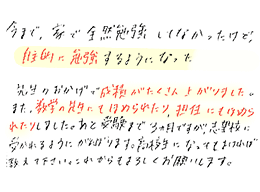 今まで、家で全然勉強しなかったけど、
自主的に勉強するようになった
先生のおかげで成績がたくさん上がりました。
また、数学の先生にもほめられたり、担任にもほめら
れたりしました。あと受験まで3ヵ月ですが、志望校に
受かれるようにがんばります。高校生になってもまたければ
教えて下さい。これからもよろしくお願いします。